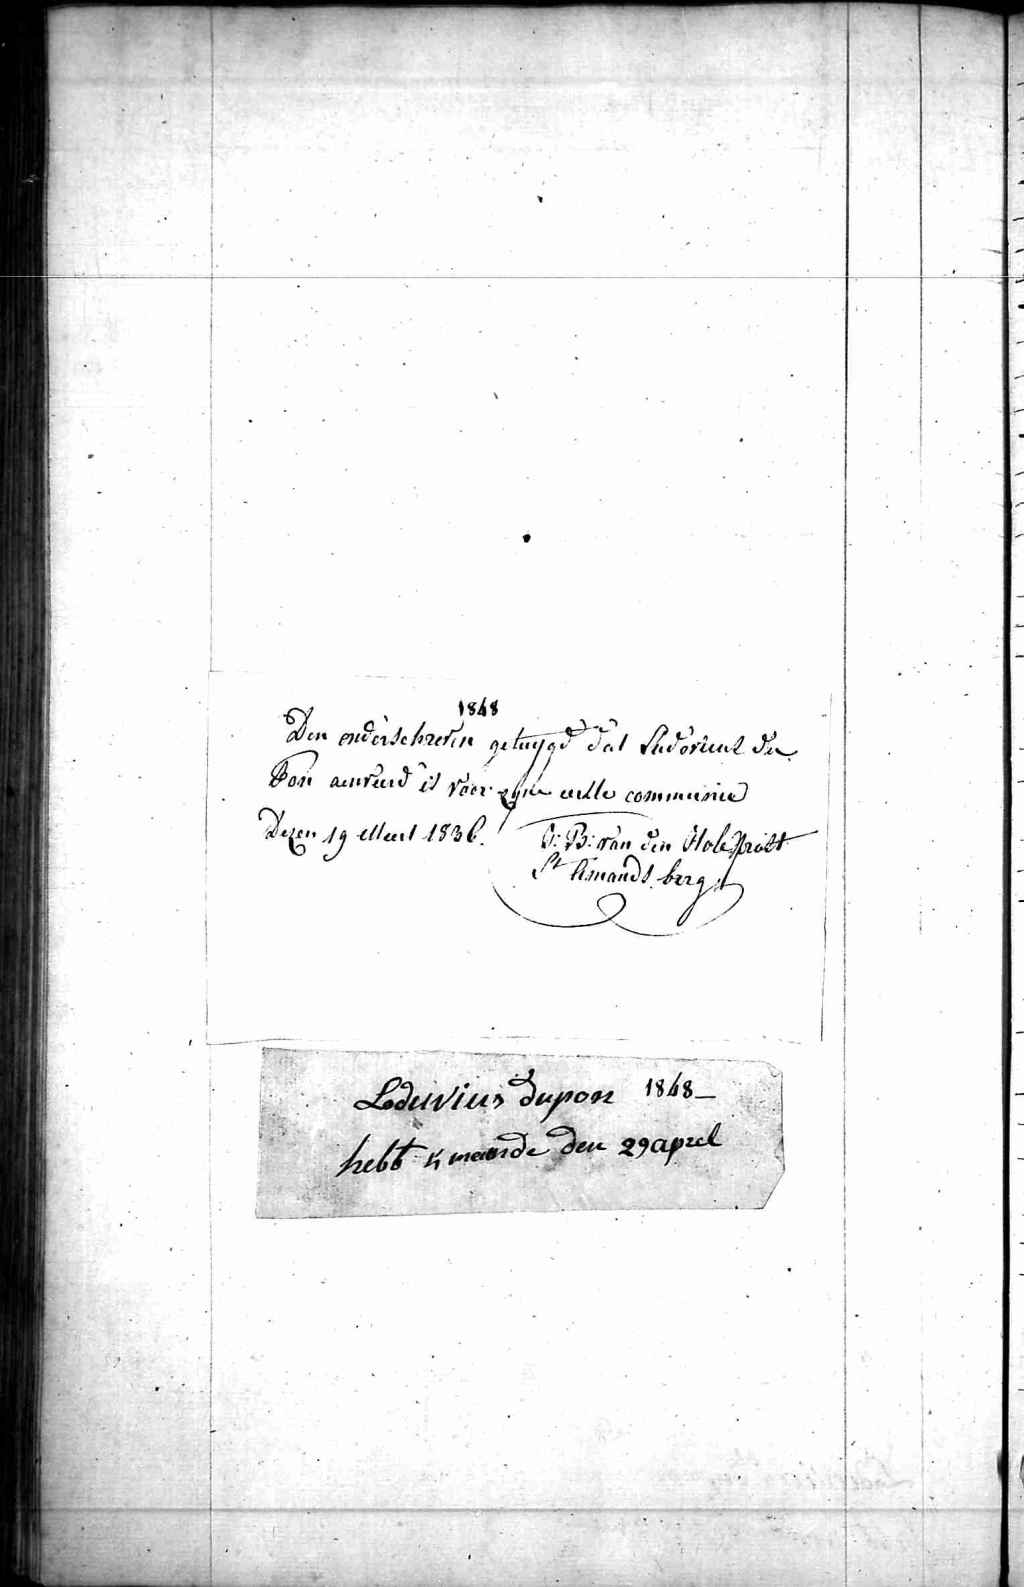 1848
Den onderschreven getuygd dat Ludovicus du
Pon aenveird is voor zyne eerste communie
Dezen 19 Meert 1836.
J: B: van den Hole prist
St Amands berg
Loduvius dupon 1848
hebt 4 maende den 29 aprel